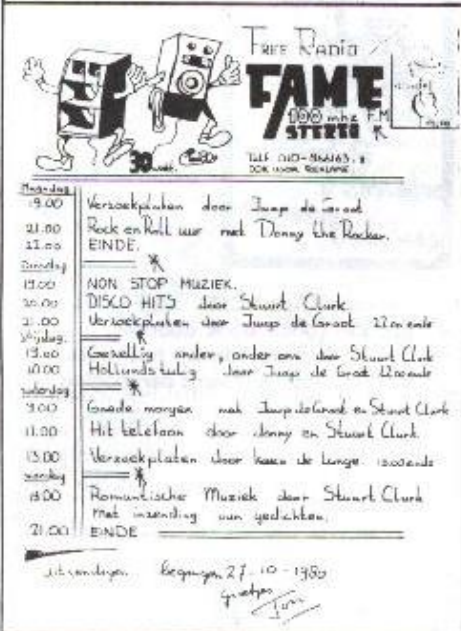 FREE RADIO
FAME
100 mhz FM
STEREO
30 watt.
TELF 010-
OOK VOOR REKLAME
Maandag
19.00 Verzoekplaten door Jaap de Groot
21.00 Rock en Roll uur met Donny the Rocker.
22.00 EINDE.
Dinsdag
19.00 NON STOP MUZIEK.
20.00 DISCO HITS door Stuurt Clurk
21.00 Verzoekplaten door Jaap de Groot 22.00 einde
Vrijdag.
19.00 Gezellig onder, onder ons door Stuurt Clurk
Hollandstalig door Jaap de Groot 22.00 einde
zaterdag
9.00 Goede morgen met Jaap de Groot en Stuurt Clurk
11.00 Hit telefoon door en Stuurt Clurk
13.00 Verzoekplaten door de Lange.
zondag
Romantische Muziek door Stuurt Clurk
Met inzending van gedichten.
21.00 EINDE
uitzendingen begonnen 27-10-
groetjes